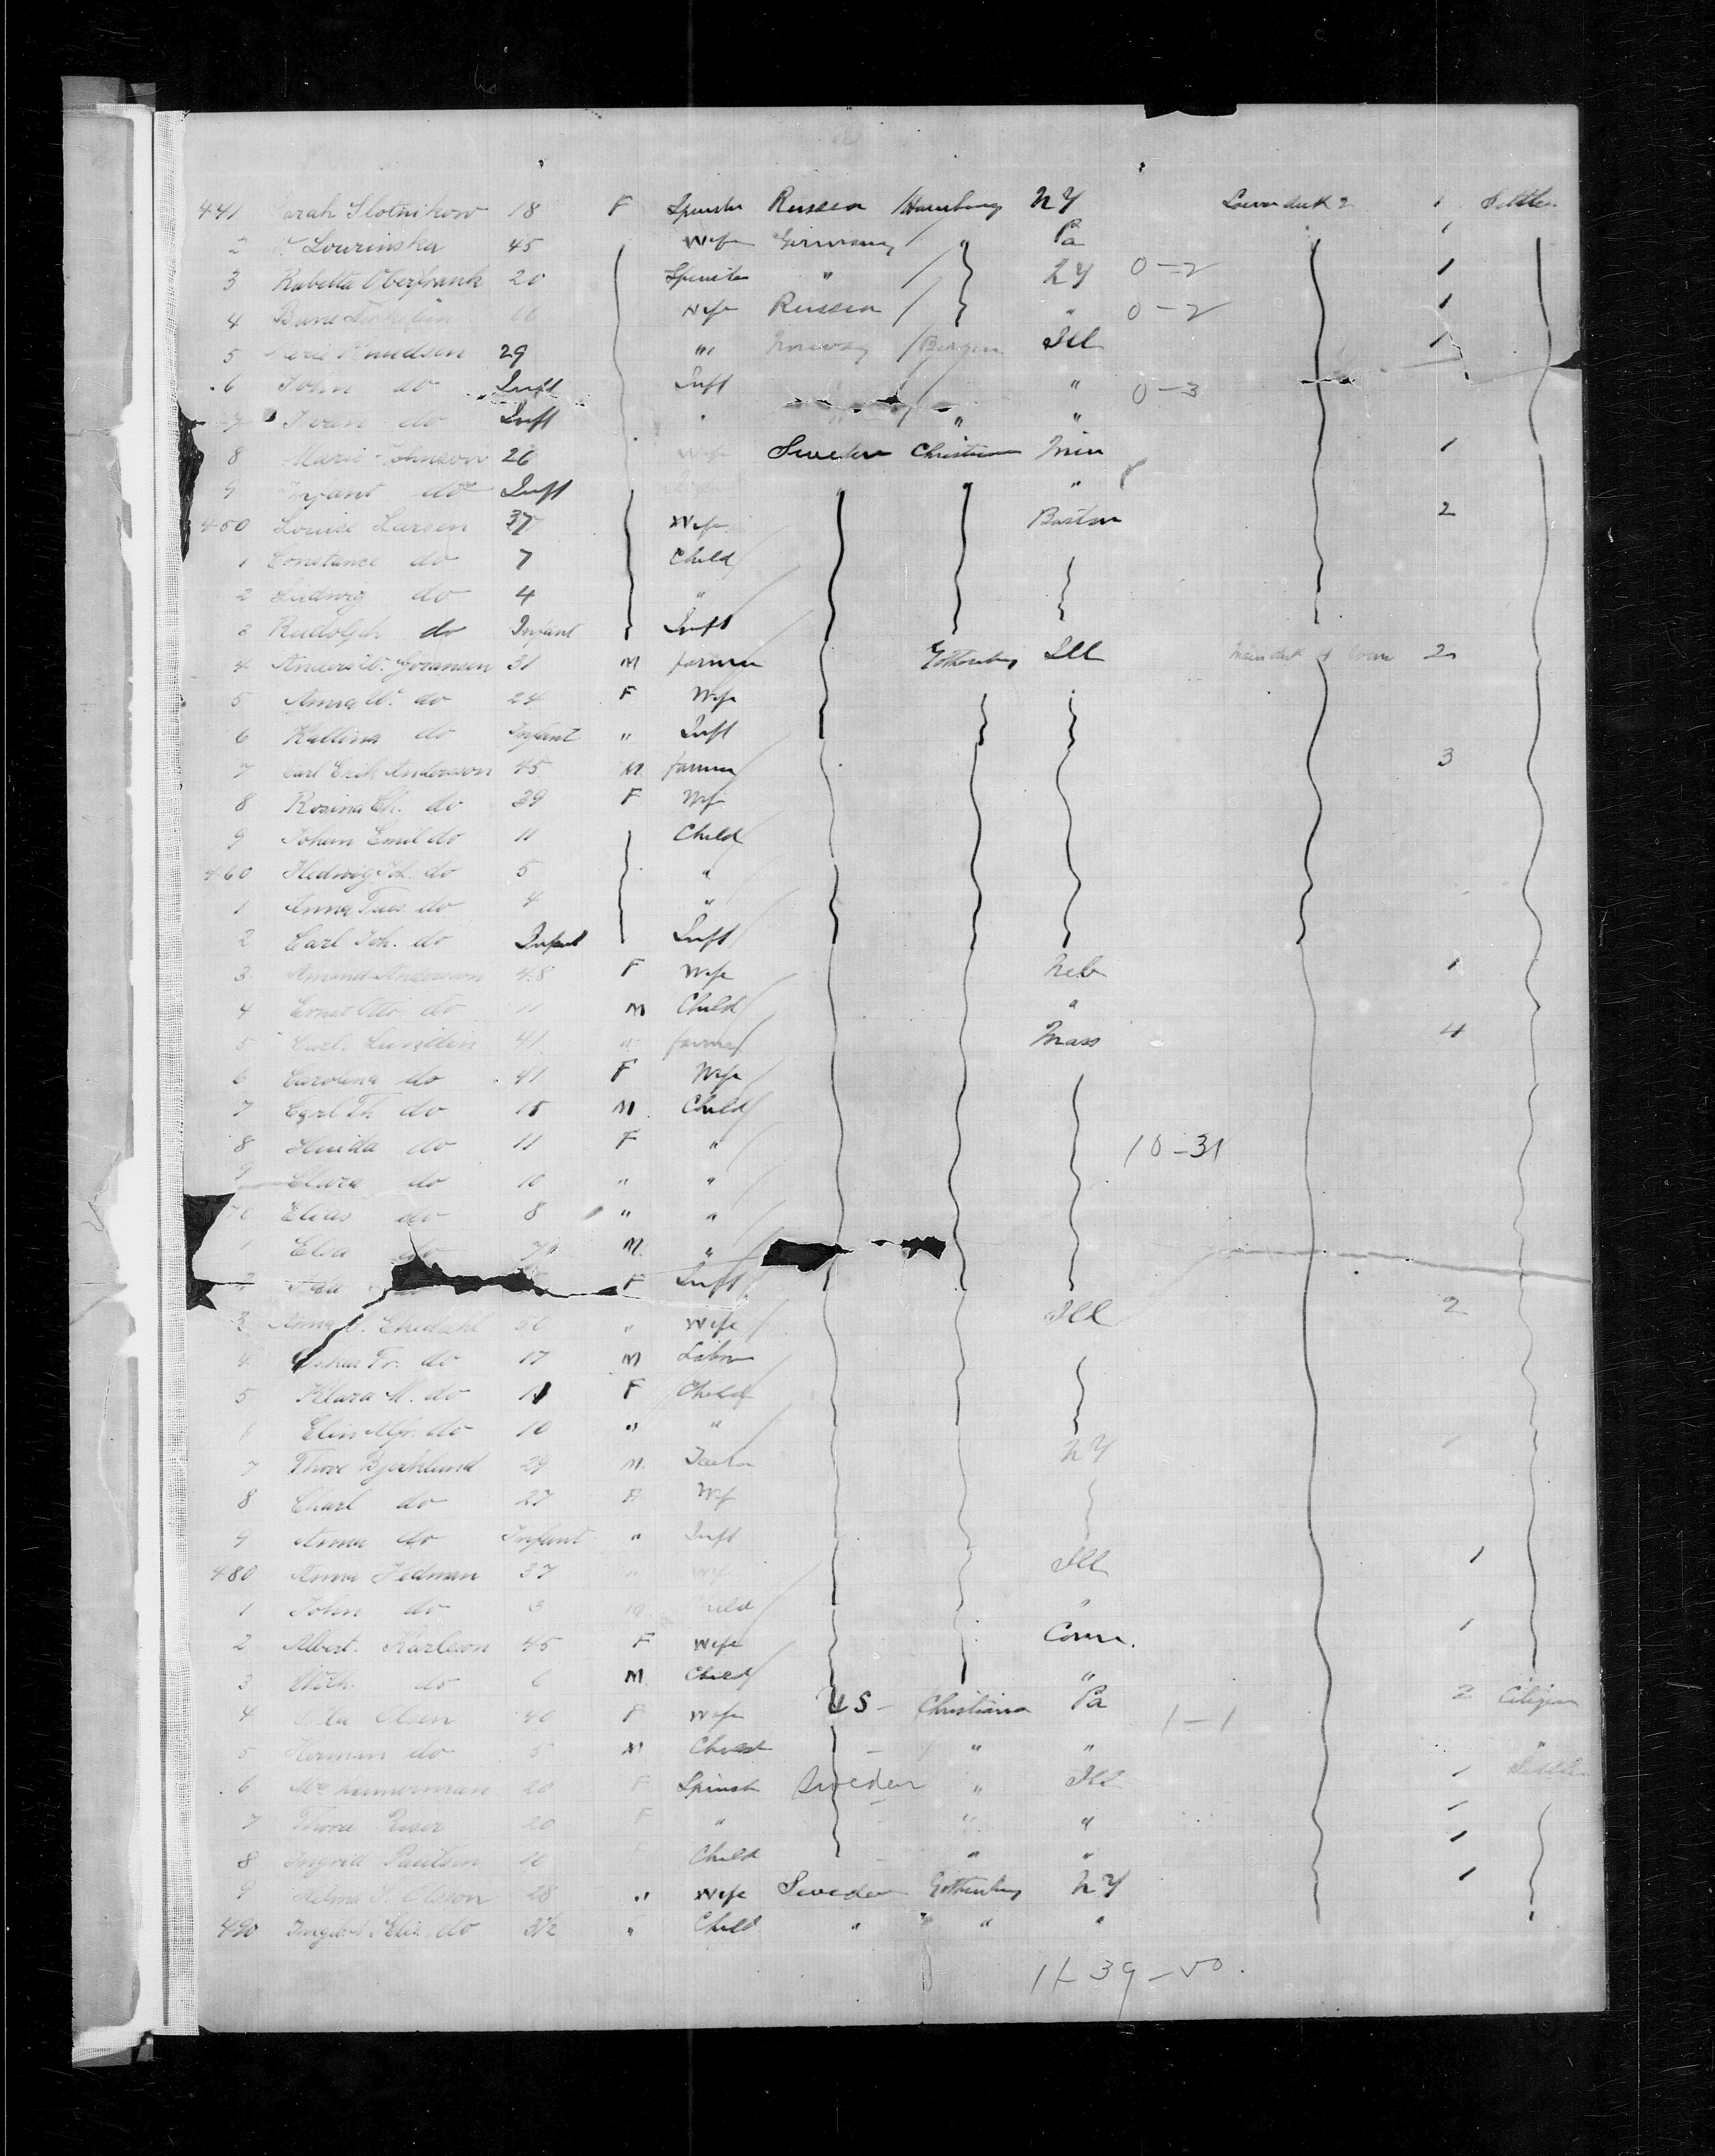 441 Sarah Slotnikow 18 F Spinster Russia / Hamburg NY Lower deck 2 1 Settler
2 Lowrinska 45 Wife Germany / " Pa 1
3 Rabetta Oberfrank 20 Spinster " / NY 0-2 1
4 Wife Russia / " 0-2 1
5 Knudsen 29 "" Norway / Bergen Ill 1
6 John do Inft Inft / " 0-3
7 Iver do Inft " " / " "
8 Marie Johnson 26 Wife Sweden Christiana Min 1
9 Infant do Inft "
450 Louise Larsen 37 Wife Boston 2
1 Constance do 7 Child
2 Ludwig do 4 "
3 Rudolph do Infant Inft
4 Anders W. Goransen 31 M farmer Gothenburg Ill Main deck 2
5 Anna W. do 24 F Wife
6 Kallina do Infant " Inft
7 Carl Erik Andersson 45 M farmer 3
8 Rosina Ch. do 39 F Wife
9 Johan Emil do 11 Child
460 Hedwig Joh. do 5 "
1 Anna do 4 "
2 Carl Joh. do Infant Inft
3 Amanda Anderson 48 F Wife Neb 1
4 Ernst Otto do 11 M Child "
5 Carl Lundlin 41 " farmer Mass 4
6 Carolina do 41 F Wife
7 Carl Th do 15 M Child
8 do 11 F " 10-31
9 Clara do 10 " "
70 Elias do 8 " "
1 Elva do 7 M "
2 F Inft
3 Anna Ekedahl 50 " Wife Ill 2
4 Oskar Fr. do 17 M Labor
5 Klara M. do 11 F Child
6 Elin do 10 " "
7 Thore Bjerklund 29 M. NY 1
8 Charl do 27 F Wife
9 Anna do Infant " Inft
480 Anna Hedman 37 " Wife Ill 1
1 John do 3 M Child "
2 Albert. Karlsson 45 F Wife Conn. 1
3 do 6 M Child "
4 Olsen 40 F Wife US- Christiana Pa 1-1 2 Citizen
5 Herman do 5 M Child - / " " "
6 20 F Spinster Sweden " Ill 1 Settler
7 Thora 20 F " " " 1
8 Ingrid Paulsen 10 Child " " 1
9 Olsson 28 " Wife Sweden Gothenburg NY 1
490 do 3½ " Child " " "
11-39-50.